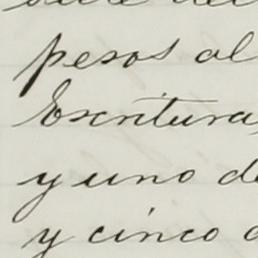 pesos al
Escritura,
y uno de
y cinco